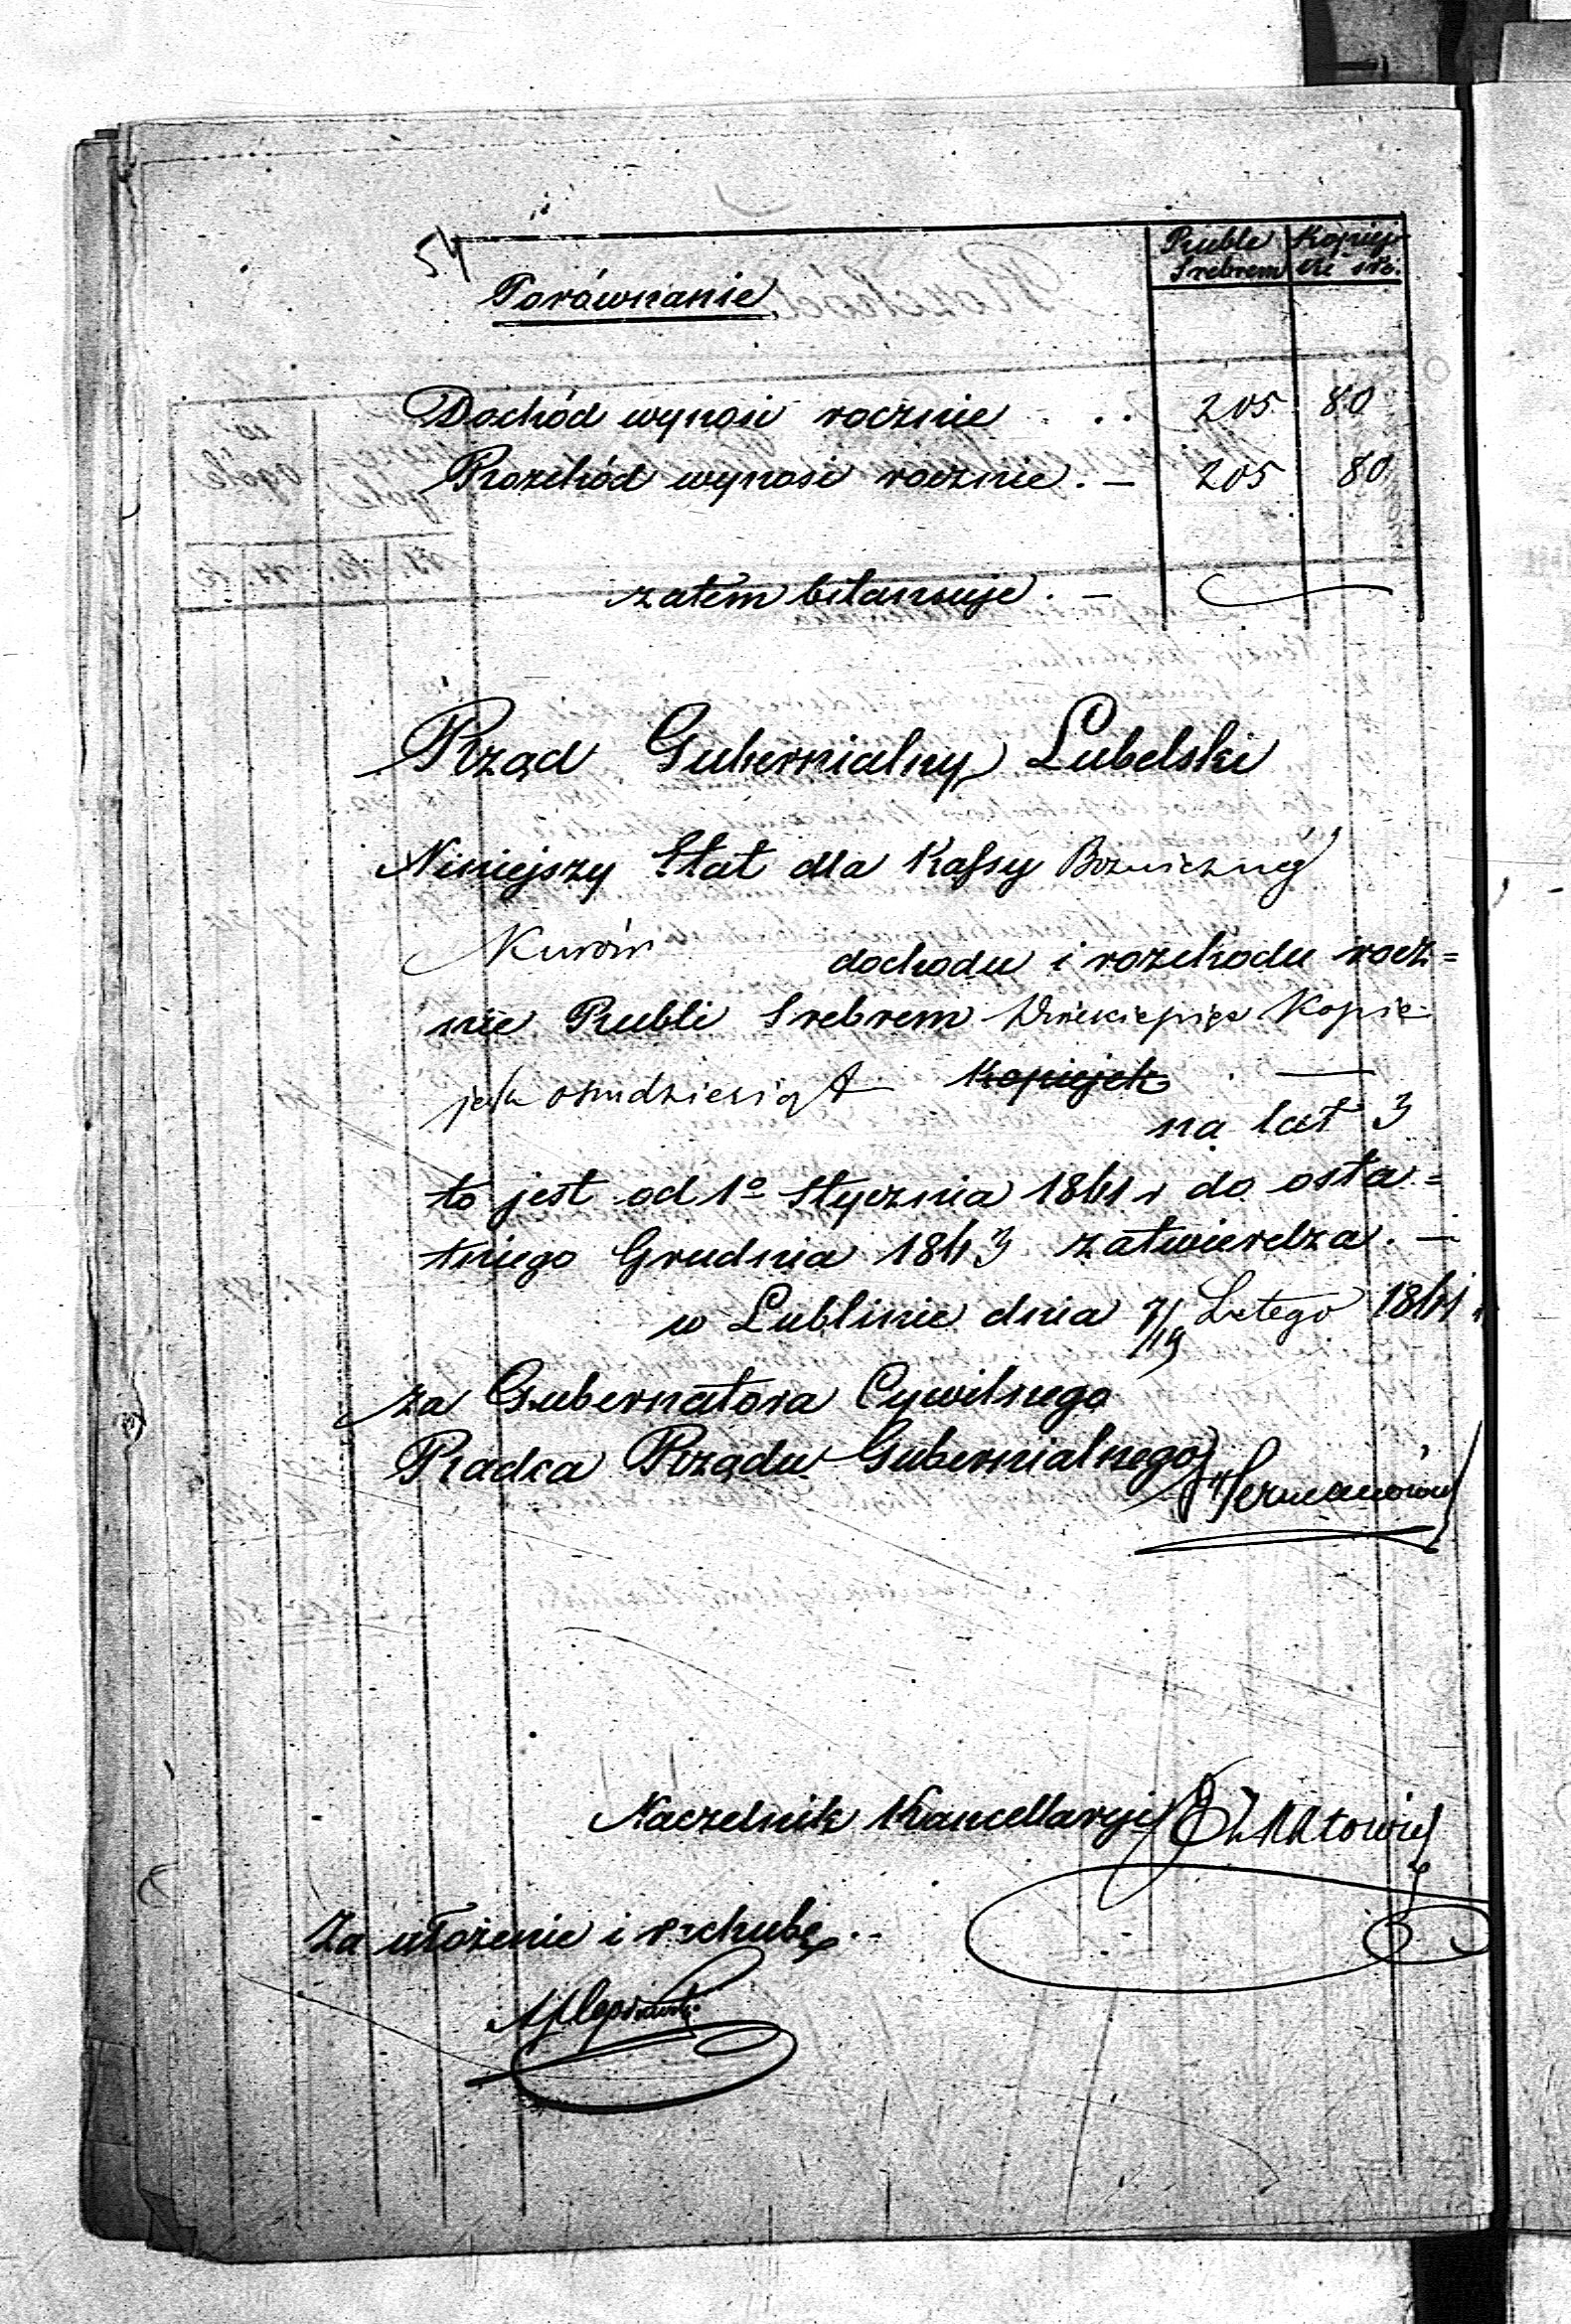 54
Ruble Kopiej-
Srebrem ki sr.
Porównanie
Dochód wynosi rocznie . . 205 80
Rozchód wynosi rocznie . — 205 80
zatem bilansuje . —
Rząd Gubernialny Lubelski
Niniejszy Etat dla Kassy Bożnicznéj
Kurów dochodu i rozchodu rocz=
nie Rubli Srebrem Dwieściepięć Kopie-
jek osmdziesiąt Kopiejek . —
na lat 3
to jest od 1o Stycznia 1861 r do osta=
tniego Grudnia 1863 zatwierdza . —
w Lublinie dnia 7/19 Lutego 1861 r
za Gubernatora Cywilnego
Radca Rządu Gubernialnego
Naczelnik Kancellaryi
Za ułożenie i rachubę . .